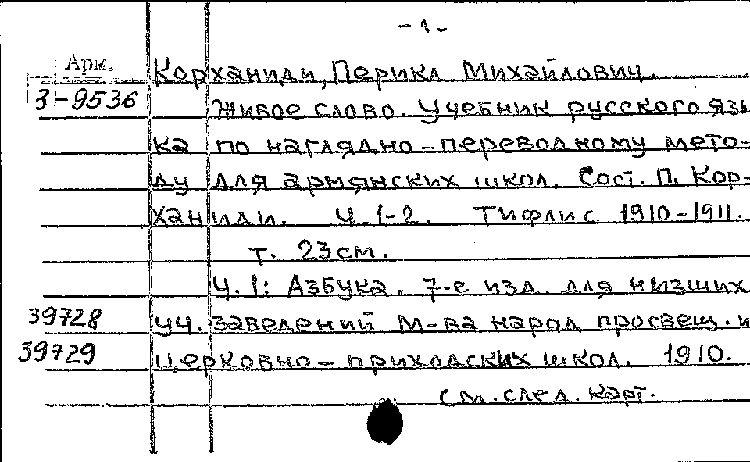 - 1 -
Арм.
Корханиди, Перикл Михайлович.
З-9536
Живое слово. Учебник русского язы
ка по наглядно-переводному мето-
ду для армянских школ. Сост. П. Кор-
ханиди. Ч. 1-2. Тифлис 1910-1911.
т. 23 см.
Ч. 1: Азбука. 7-е изд. для низших
39728 уч. заведений М-ва народ. просвещ. и
39729 церковно-приходских школ. 1910.
см. след. карт.